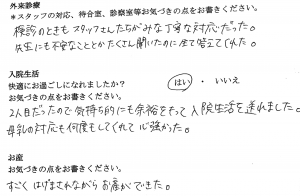 外来診療
*スタッフの対応、待合室、診察室等お気づきの点をお書きください。
検診のときも スタッフさんたちがみな丁寧な対応だった。
先生にも不安なこととか たくさん聞いたのに全て答えてくれた。
入院生活
快適にお過ごしになれましたか? はい ・ いいえ
お気づきの点をお書きください。
2人目だったので気持ち的にも余裕をもって入院生活を送れました。
母乳の対応も何度もしてくれて心強かった。
お産
お気づきの点をお書きください。
すごく はげまされながら お産ができた。